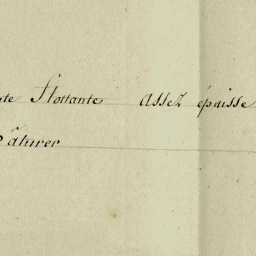 flottante assez épaisse
pâturer